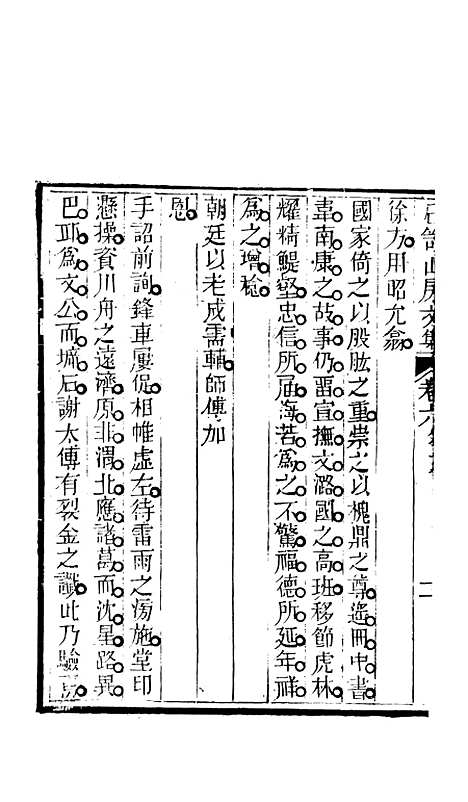 山房文集 卷六
二
徐方用昭允翕
國家倚之以股肱之重崇之以槐鼎之尊遙冊中書
韋南康之故事仍畱宣撫文潞國之高班移節虎林
耀精鯷壑忠信所屆海若為之不驚福德所延年祥
為之增稔
朝廷以老成需輔師傅加
恩
手詔前詢鋒車屢促相帷虛左待雷雨之滂施堂印
懸操資川舟之遠濟原非渭北應諸葛而沈星路異
巴邛為文公而壙石謝太傅有裂金之讖此乃驗